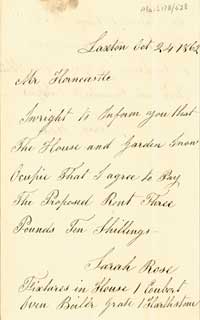 Laxton Oct 24 1862
Mr Horncastle
I wright to Inform you that
The House and Garden I now
Ocupie That I agree to Pay
The Proposed Rent Three
Pounds Ten Shillings
Sarah Rose
Fixtures in House 1 Cubort
Oven Boiler Grate 1 Harthstone